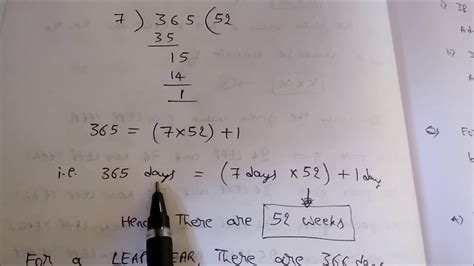 7 ) 365 ( 52
35
15
14
1
365 = (7×52) + 1
i.e. 365 days = (7 days ×52) + 1 day
There are 52 weeks
For a LEAP YEAR, There are 366 days